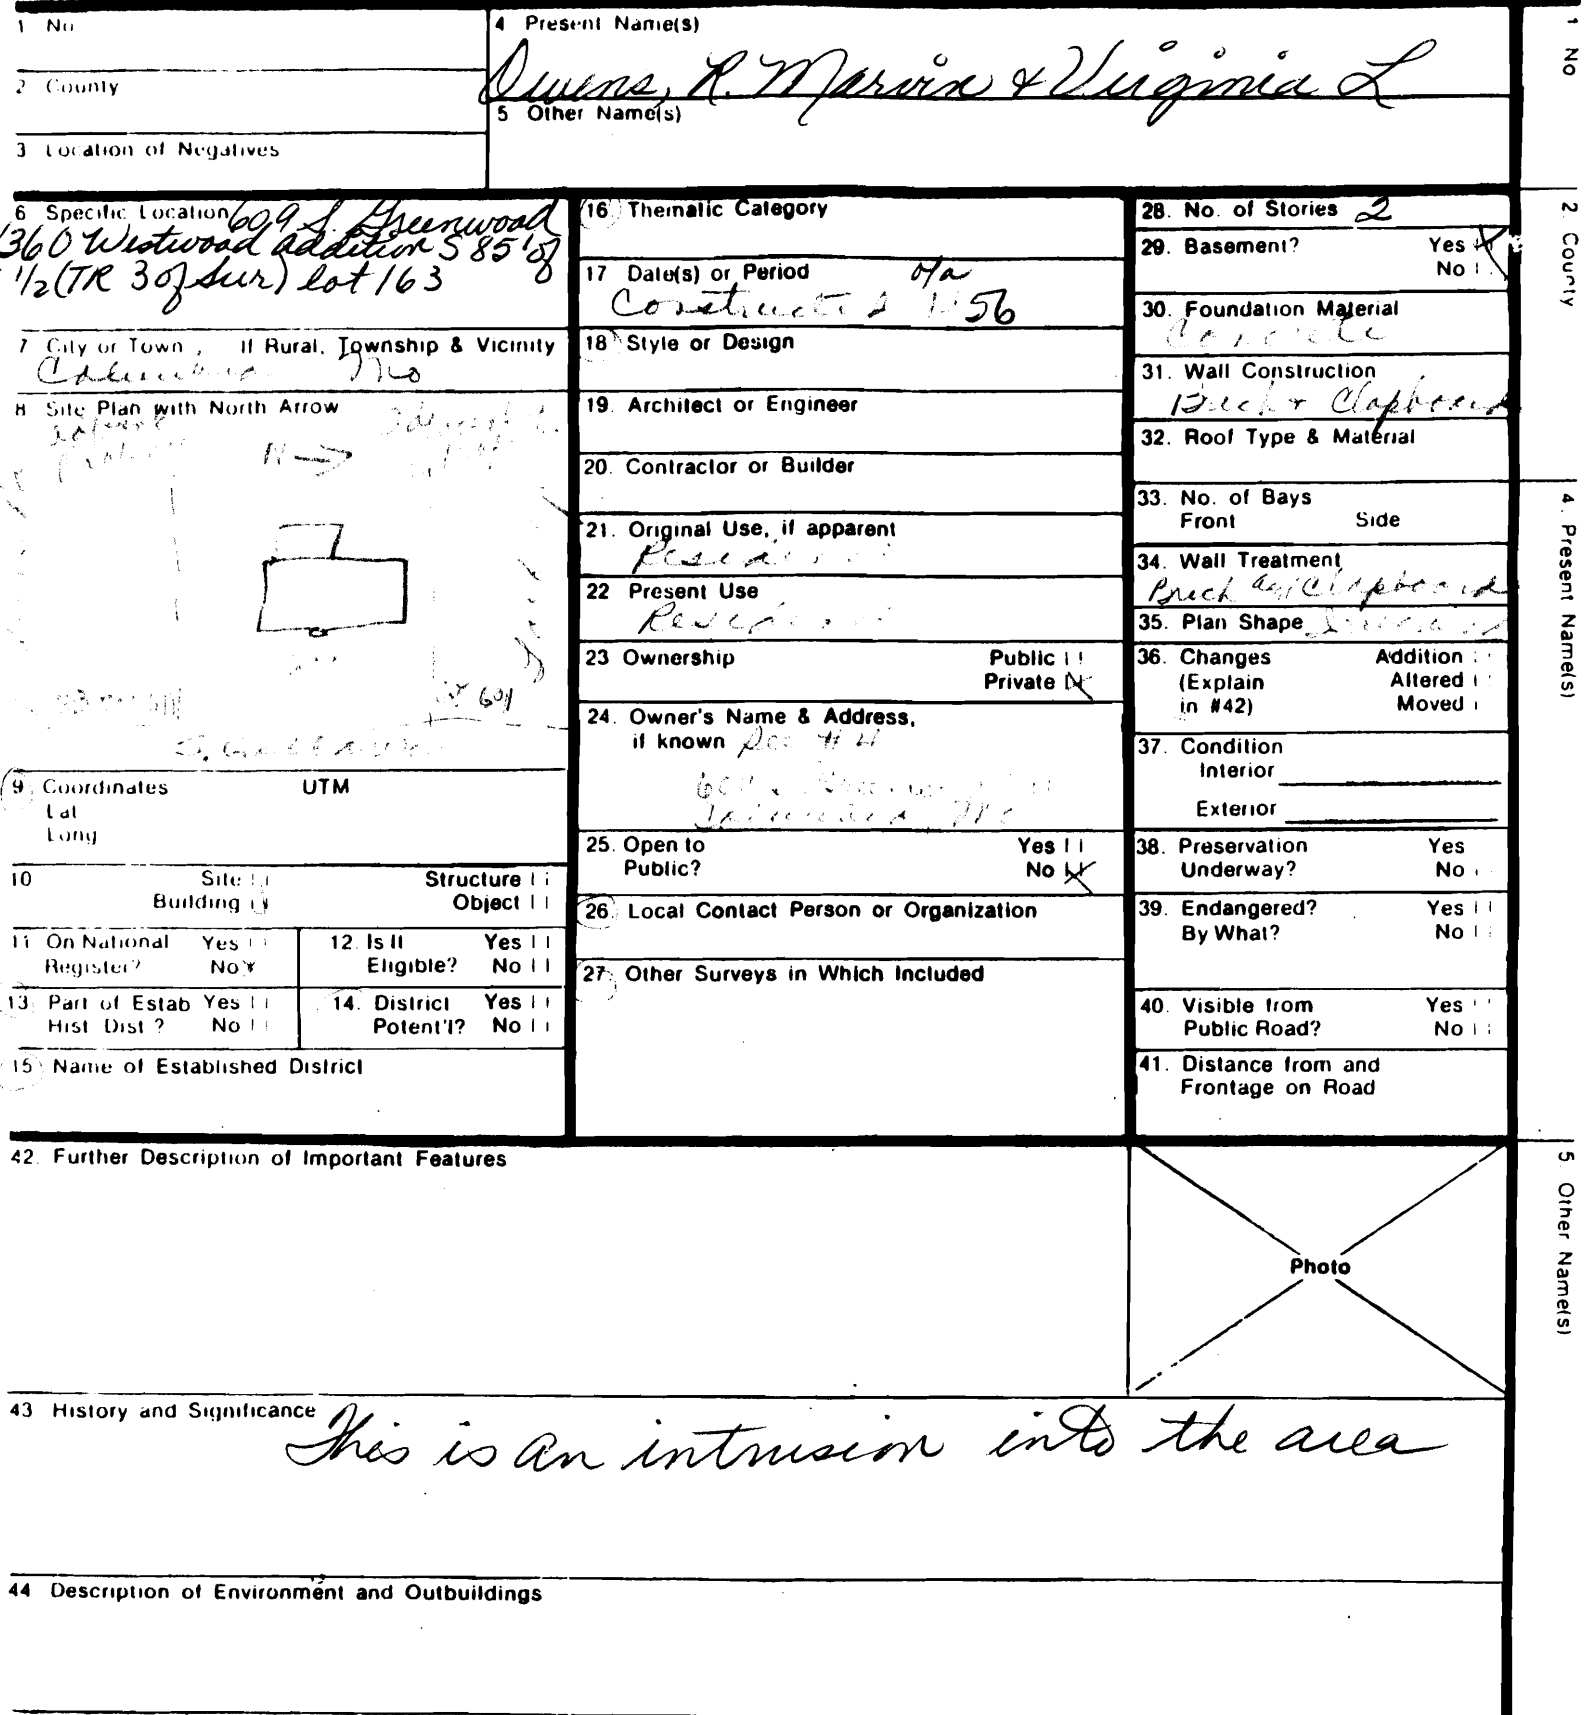 1 No
4 Present Name(s)
Owens, R. Marvin & Virginia L
2 County
5 Other Name(s)
3 Location of Negatives
6 Specific Location 609 S. Greenwood
1360 Westwood addition S 85' of
1/2 (TR 3 of Sur) lot 163
7 City or Town, If Rural, Township & Vicinity
Columbia Mo
8 Site Plan with North Arrow
N
601
S. Greenwood
9 Coordinates UTM
Lat
Long
10 Site Structure
Building Object
11 On National Register? Yes No x
12. Is It Eligible? Yes No
13. Part of Estab Hist Dist? Yes No
14. District Potent'l? Yes No
15 Name of Established District
16 Thematic Category
17 Date(s) or Period
Constructed 1956
18 Style or Design
19. Architect or Engineer
20. Contractor or Builder
21. Original Use, if apparent
Residence
22 Present Use
Residence
23 Ownership Public
Private X
24. Owner's Name & Address,
if known See #4
Columbia, Mo
25. Open to Yes
Public? No X
26. Local Contact Person or Organization
27. Other Surveys in Which Included
28. No. of Stories 2
29. Basement? Yes X
No
30. Foundation Material
Concrete
31. Wall Construction
Brick & Clapboard
32. Roof Type & Material
33. No. of Bays
Front Side
34. Wall Treatment
Brick Clapboard
35. Plan Shape
36. Changes Addition
(Explain Altered
in #42) Moved
37. Condition
Interior
Exterior
38. Preservation Yes
Underway? No
39. Endangered? Yes
By What? No
40. Visible from Yes
Public Road? No
41. Distance from and
Frontage on Road
42. Further Description of Important Features
Photo
43 History and Significance
This is an intrusion into the area
44 Description of Environment and Outbuildings
1 No
2. County
4. Present Name(s)
5. Other Name(s)